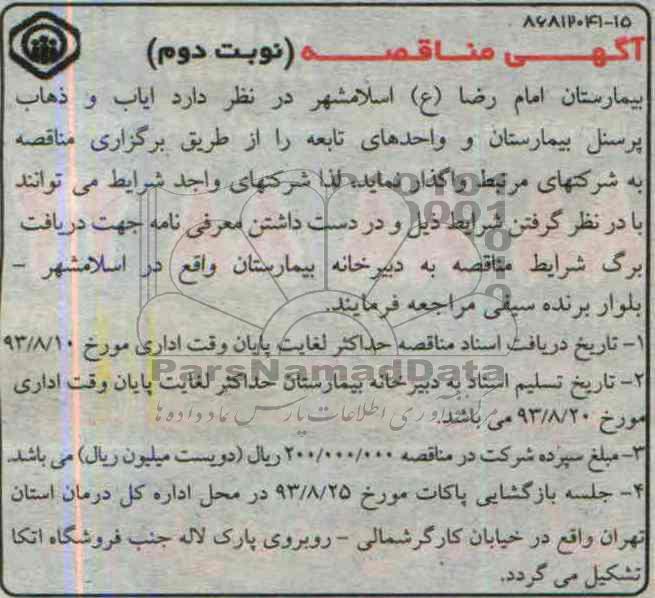 ۸۶۸۱۲۰۴۱-۱۵
آگهـــی منـــاقصـــه (نوبت دوم)
بیمارستان امام رضا (ع) اسلامشهر در نظر دارد ایاب و ذهاب
پرسنل بیمارستان و واحدهای تابعه را از طریق برگزاری مناقصه
به شرکتهای مرتبط واگذار نماید، لذا شرکتهای واجد شرایط می توانند
با در نظر گرفتن شرایط ذیل و در دست داشتن معرفی نامه جهت دریافت
برگ شرایط مناقصه به دبیرخانه بیمارستان واقع در اسلامشهر -
بلوار برنده سیفی مراجعه فرمایند.
۱- تاریخ دریافت اسناد مناقصه حداکثر لغایت پایان وقت اداری مورخ ۹۳/۸/۱۰
ParsNamadData
۲- تاریخ تسلیم اسناد به دبیرخانه بیمارستان حداکثر لغایت پایان وقت اداری
مرکز فرآوری اطلاعات پارس نماد داده ها
مورخ ۹۳/۸/۲۰ می باشد.
۳- مبلغ سپرده شرکت در مناقصه ۲۰۰/۰۰۰/۰۰۰ ریال (دویست میلیون ریال) می باشد.
۴- جلسه بازگشایی پاکات مورخ ۹۳/۸/۲۵ در محل اداره کل درمان استان
تهران واقع در خیابان کارگرشمالی - روبروی پارک لاله جنب فروشگاه اتکا
تشکیل می گردد.